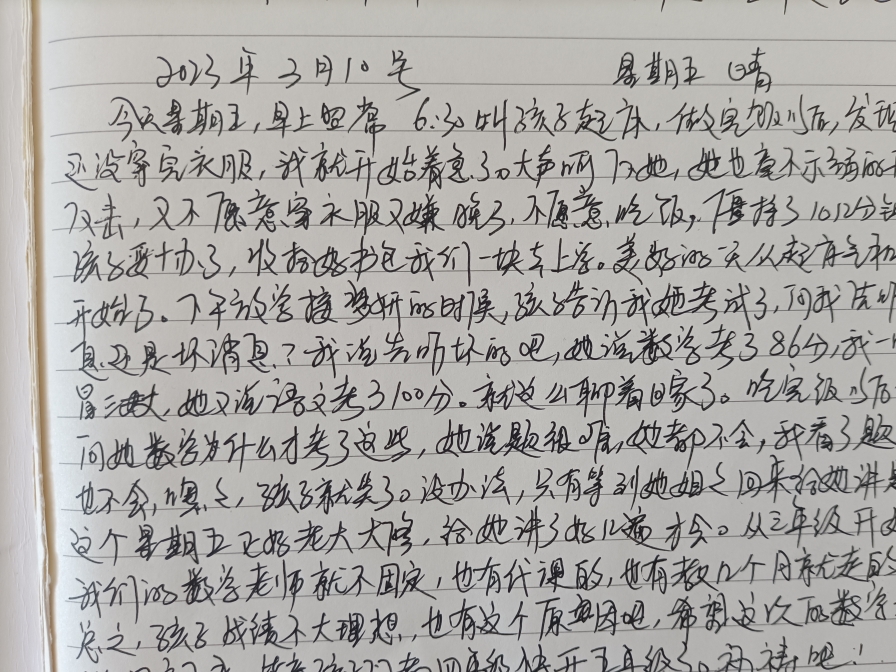 2023年3月10号 星期五 晴
今天星期五,早上照常6:30叫孩子起床,做完饭以后,发现
还没穿完衣服,我就开始着急了。大声吼了她,她也毫不示弱的
反击,又不愿意穿衣服又嫌晚了,不愿意吃饭,僵持了10几分钟
孩子妥协了,收拾好书包我们一块去上学。美好的一天从起床气
开始了。下午放学接梦妍的时候,孩子告诉我她考试了,问我先听
息还是坏消息?我说先听坏的吧,她说数学考了86分,我一
冒三丈,她又说语文考了100分。就这么聊着回家了。吃完饭以后
问她数学为什么才考了这些,她说题很难,她都不会,我看了题
也不会,嘿嘿,孩子就笑了。没办法,只有等到她姐姐回来给她讲
这个星期五正好老大大修,给她讲了好几遍才会。从三年级开始
我们的数学老师就不固定,也有代课的,也有教几个月就走的
总之,孩子成绩不大理想,也有这个原因吧,希望这次的数学
四年级快开五年级了,祈祷吧!